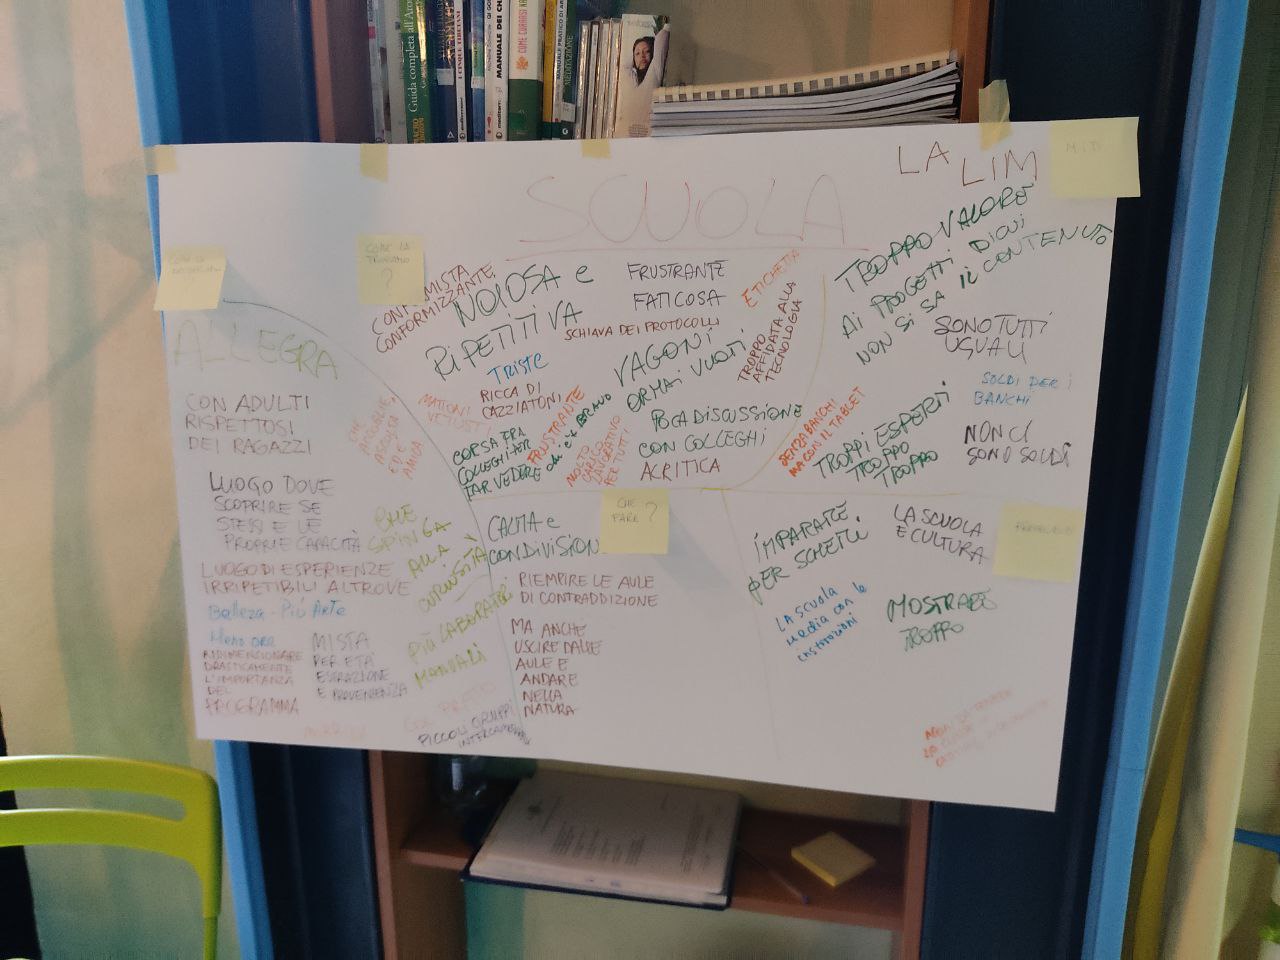 Guida completa all'
MANUALE DEI
COME CURARSI
MEDITAZIONE
SCUOLA
LA LIM
MITI
COME LA
?
COME LA
TROVIAMO
?
ALLEGRA
CON ADULTI
RISPETTOSI
DEI RAGAZZI
LUOGO DOVE
SCOPRIRE SE
STESSI E LE
PROPRIE CAPACITÀ
LUOGO DI ESPERIENZE
IRRIPETIBILI ALTROVE
Bellezza - Più Arte
Meno ore
RIDIMENSIONARE
DRASTICAMENTE
L'IMPORTANZA
DEL
PROGRAMMA
MISTA
PER ETÀ
ESTRAZIONE
E PROVENIENZA
CHE
ACCOGLIE,
ASCOLTA
ED È
AMICA
CHE
SPINGA
ALLA
CURIOSITÀ
PIÙ LABORATORI
MANUALI
PICCOLI GRUPPI
CONFORMISTA
CONFORMIZZANTE
NOIOSA e
RIPETITIVA
FRUSTRANTE
FATICOSA
SCHIAVA DEI PROTOCOLLI
ETICHETTA
TROPPO ALLA
AFFIDATA ALLA
TECNOLOGIA
TRISTE
MATTONI
VETUSTI
RICCA DI
CAZZIATONI
VAGONI
ORMAI VUOTI
CORSA FRA
COLLEGHI PER
FAR VEDERE chi è + BRAVO
FRUSTRANTE
MOLTO
POCO
LAVORATIVO
PER TUTTI
POCA DISCUSSIONE
CON COLLEGHI
ACRITICA
TROPPO VALORE
AI PROGETTI DI CUI
NON SI SA IL CONTENUTO
SONO TUTTI
UGUALI
SOLDI PER i
BANCHI
SENZA BANCHI
MA CON IL TABLET
TROPPI ESPERTI
TROPPO
TROPPO
NON CI
SONO SOLDI
CHE
FARE ?
CALMA e
CONDIVISION
RIEMPIRE LE AULE
DI CONTRADDIZIONE
MA ANCHE
USCIRE DALLE
AULE E
ANDARE
NELLA
NATURA
IMPARARE
PER SCHEMI
LA SCUOLA
È CULTURA
LA SCUOLA
Media con le
MOSTRARE
TROPPO